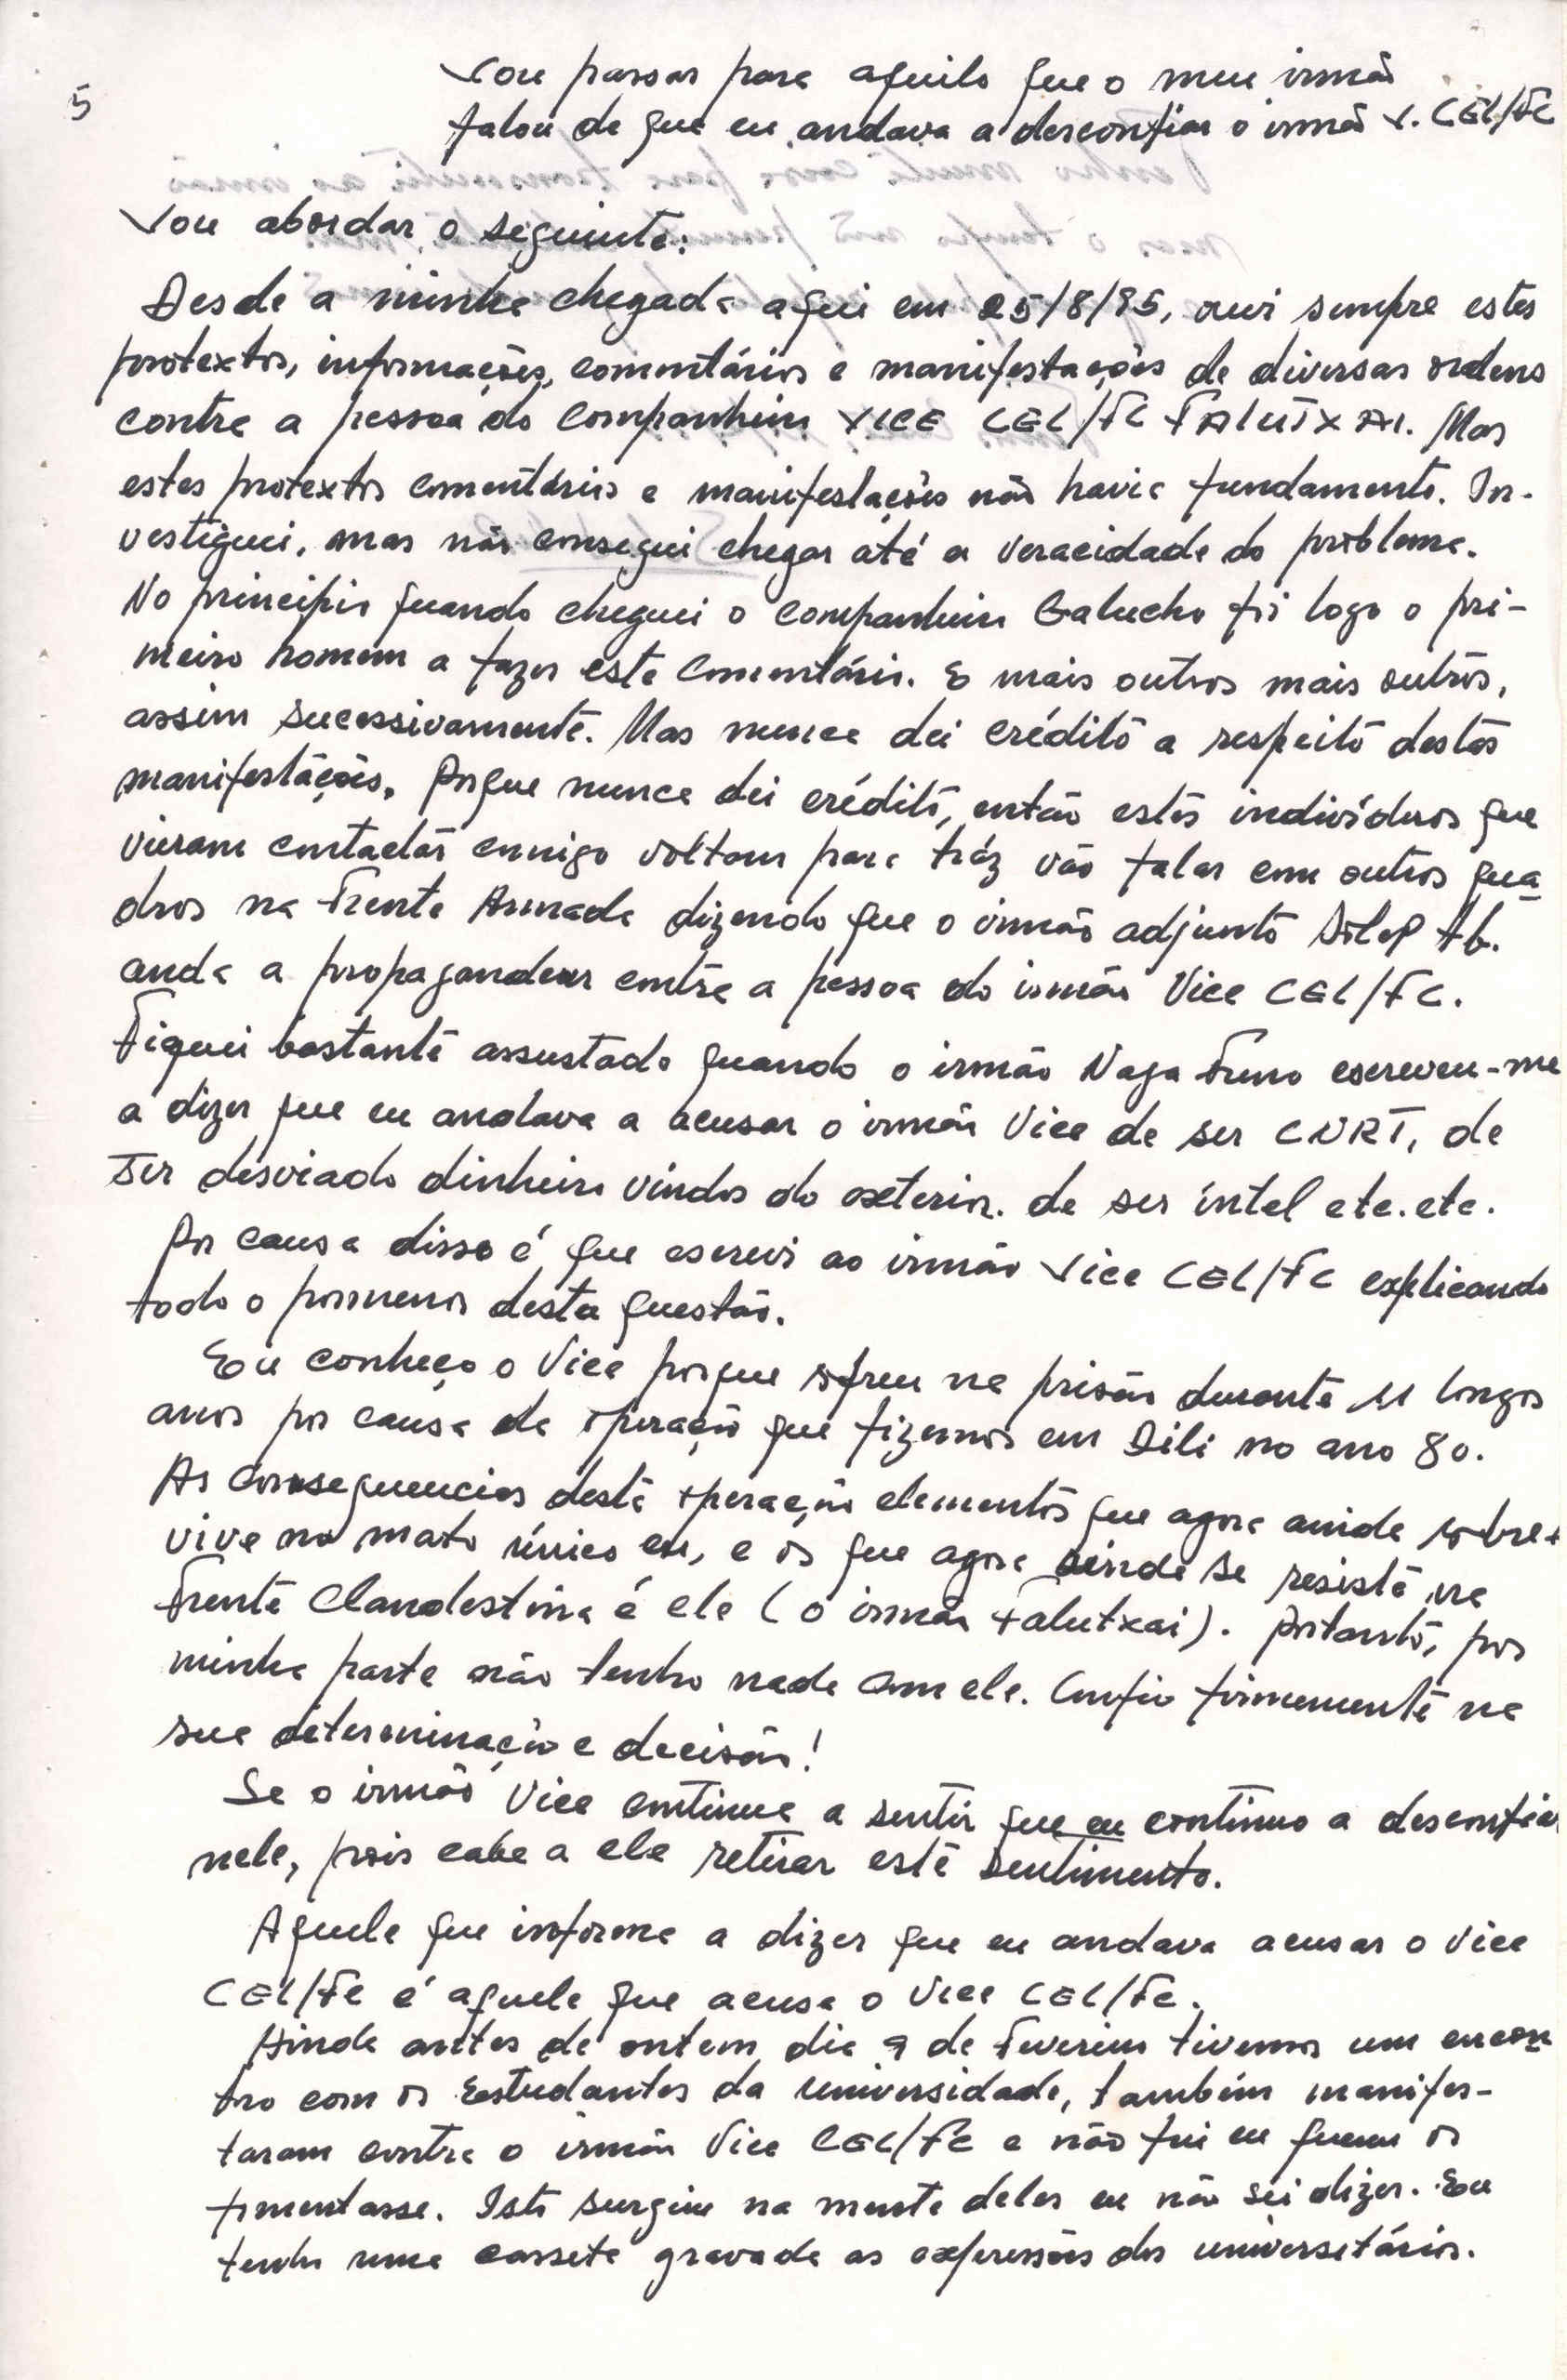 5
Vou passar para aquilo que o meu irmão
falou de que eu andava a desconfiar o irmão V. CEL/FC
Vou abordar o seguinte:
Desde a minha chegada aqui em 25/8/95, ouvi sempre estes
protextos, informações, comentários e manifestações de diversas ordens
contra a pessoa do companheiro VICE CEL/FC FALUTXAI. Mas
estes protextos comentários e manifestações não havia fundamento. In-
vestiguei, mas não consegui chegar até a veracidade do problema.
No principio quando cheguei o companheiro Galucho foi logo o pri-
meiro homem a fazer este comentário. E mais outros mais outros,
assim sucessivamente. Mas nunca dei crédito a respeito destas
manifestações. Porque nunca dei crédito, então estes indivíduos que
vieram contactar comigo voltam para tráz vão falar com outros qua
dros na Frente Armada dizendo que o irmão adjunto
anda a propagandear contra a pessoa do irmão Vice CEL/FC.
Fiquei bastante assustado quando o irmão Naga Funo escreveu-me
a dizer que eu andava a acusar o irmão Vice de ser CNRT, de
ter desviado dinheiro vindos do exterior. de ser íntel etc.etc.
Por causa disso é que escrevi ao irmão Vice CEL/FC explicando
todo o pormenor desta questão.
Eu conheço o Vice porque sofreu na prisão durante 11 longos
anos por causa de operação que fizemos em Dili no ano 80.
As consequencias desta operação elementos que agora ainda sobre-
vive no mato único eu, e os que agora ainda se resiste na
Frente Clandestina é ele (o irmão Falutxai). Portanto, por
minha parte não tenho nada com ele. Confio firmemente na
sua determinação e decisão!
Se o irmão Vice continua a sentir que eu continuo a desconfiar
nele, pois cabe a ele retirar este sentimento.
Aquele que informa a dizer que eu andava acusar o Vice
CEL/FC é aquele que acusa o Vice CEL/FC.
Ainda antes de ontem dia 9 de Fevereiro tivemos um encon
tro com os Estudantes da universidade, também manifes-
taram contra o irmão Vice CEL/FC e não fui eu quem os
fomentasse. Isto surgiu na mente deles eu não sei dizer. Eu
tenho uma cassete gravada as expressões dos universitários.